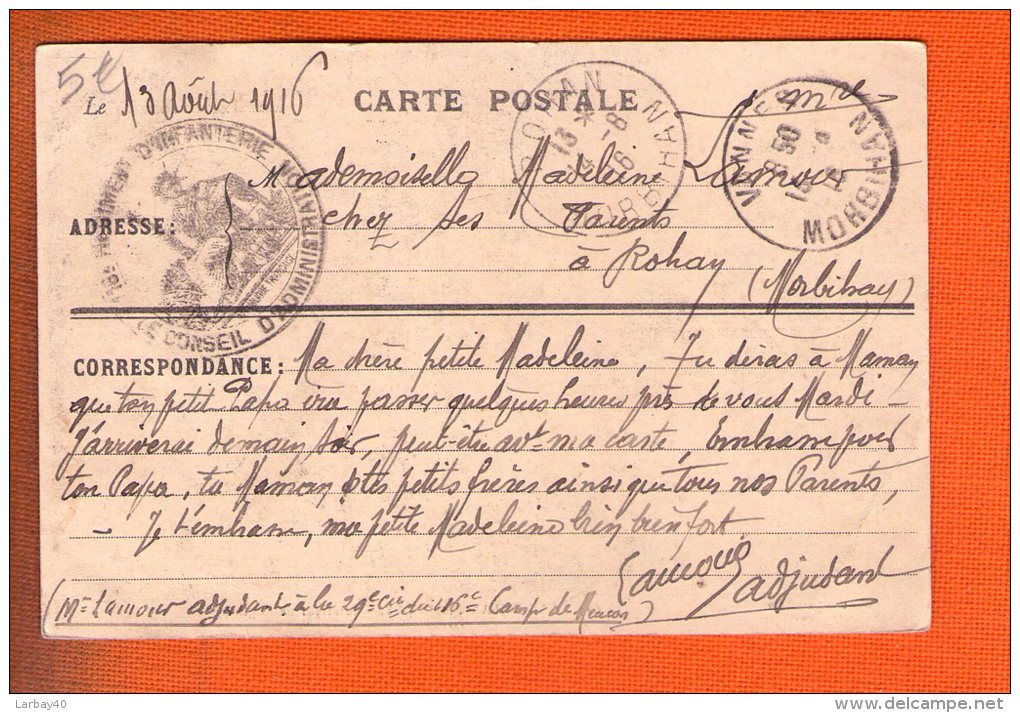 5€
Le 13 Août 1916
CARTE POSTALE
D'INFANTERIE
LE CONSEIL D'ADMINISTRATION
ROHAN
13 * -8 16
VANNES
MORBIHAN
ADRESSE:
Mademoiselle Madeleine Lamour
chez ses Parents
à Rohan
(Morbihan)
CORRESPONDANCE: Ma chère petite Madeleine, Tu diras à Maman
que ton petit Papa ira passer quelques heures près de vous Mardi –
J'arriverai demain soir, peut-être avt ma carte, Embrasse pour
ton Papa, ta Maman & tes petits frères ainsi que tous nos Parents,
– Je t'embrasse, ma petite Madeleine bien bien fort
Lamour adjudant
(Mr Lamour adjudant à la 29e Cie du 116e Camp de Meucon)
Larbay40
delcampe.net